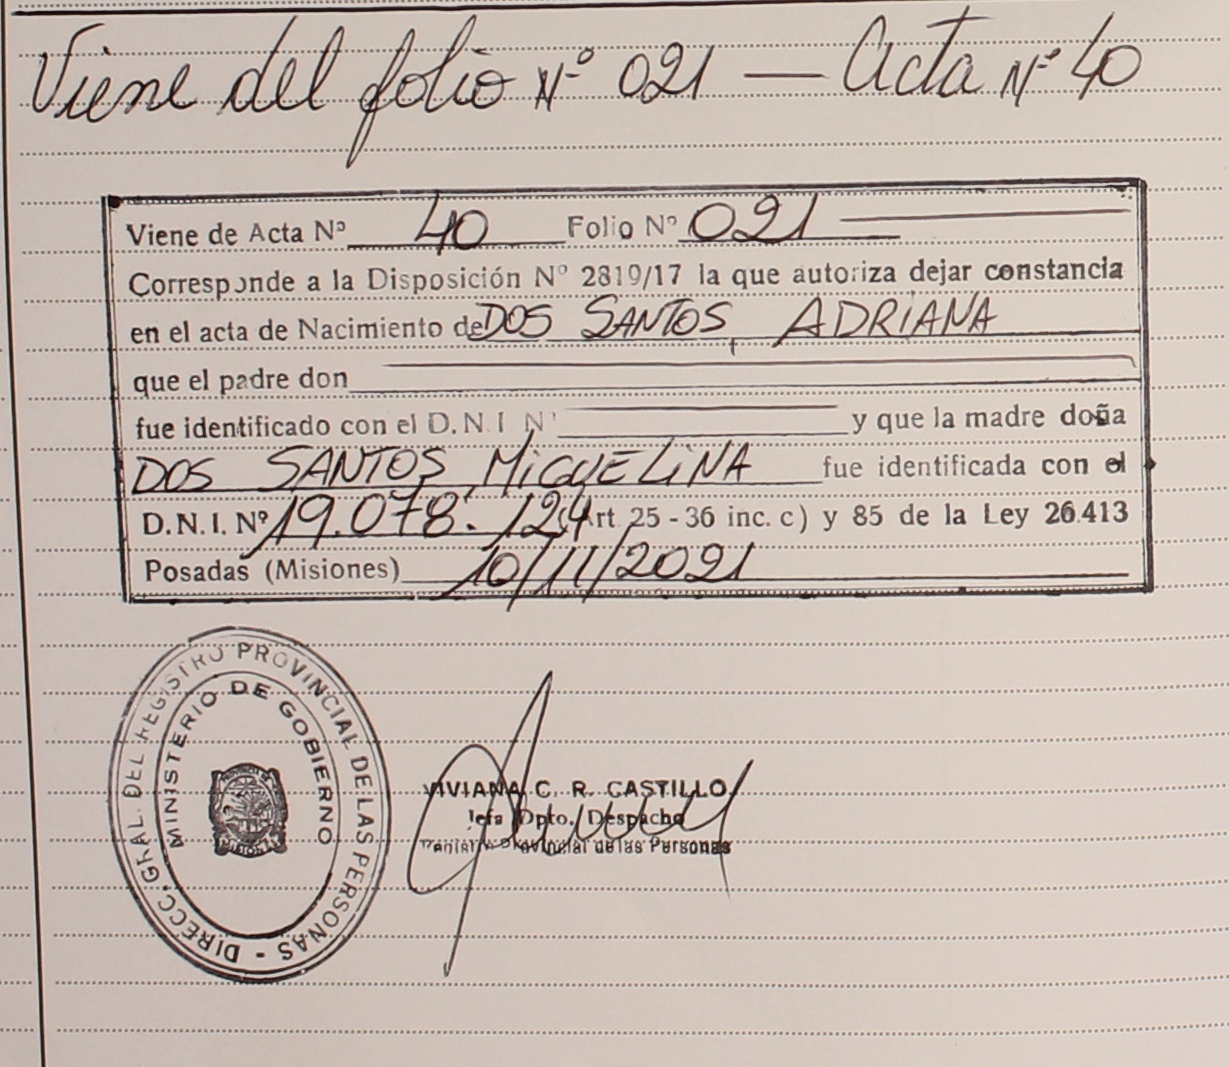 Viene del folio Nº 021 — Acta Nº 40
Viene de Acta Nº 40 Folio Nº 021
Corresponde a la Disposición Nº 2819/17 la que autoriza dejar constancia
en el acta de Nacimiento de DOS SANTOS, ADRIANA
que el padre don
fue identificado con el D.N.I Nº y que la madre doña
DOS SANTOS, MIGUELINA fue identificada con el
D.N.I. Nº 19.078.124 (Art 25 - 36 inc. c) y 85 de la Ley 26.413
Posadas (Misiones) 10/11/2021
DIRECC. GRAL. DEL REGISTRO PROVINCIAL DE LAS PERSONAS -
MINISTERIO DE GOBIERNO
VIVIANA C. R. CASTILLO
Jefa Dpto. Despacho
Provincial de las Personas